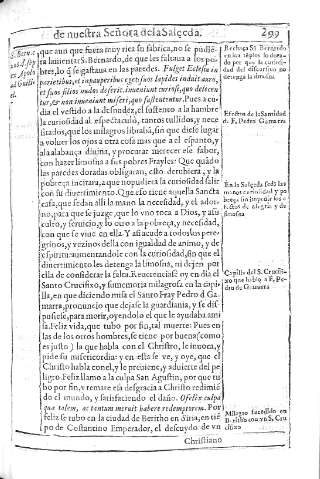 de nuestra Señora de la Salçeda. 299
que aun que fuera muy rica su fabrica, no se pudie-
ra lamẽtar S. Bernardo, de que les faltava a los po-
bres, lo q̃ se gastava en las paredes. Fulget Ecclesia in
parietibus, et in pauperibus eget: suos lapides induit auro,
et suos filios nudos deserit. inveniunt curiosi, quo delecten
tur, & non inveniunt miseri, quo sustententur. Pues a cu-
dia el vestido a la desnudez, el sustento a la hambre
la curiosidad al espectaculo, tantos tullidos, y nece
sitados, que los milagros librabã, sin que diese lugar
a volver los ojos a otra cosa mas que a el espanto, y
a la alabança divina, y procurar merecer ese sabor,
con hazer limosna a sus pobres Frayles! Que quãdo
las paredes doradas obligaran, esso detubiera, y la
pobreça incitara, a que no pudiera la curiosidad salir
con su divertimiento. O que eso tiene aquella Sancta
casa, que se dan alli la mano la necesidad, y el ador-
no, para que se juzge, que lo vno toca a Dios, y a su
culto, y servicio, y lo otro a la pobreça, y necesidad,
con que se vive en ella Y asi acude a todos los pere-
grinos, y vezinos della con igualdad de animo, y de
espiritu aumentandole con la curiosidad, sin que el
divertimiento les detenga la limosna, ni dejen por
ella de considerar la falta. Reverenciase oy en dia el
Santo Crucifixo, y su memoria milagrosa en la capi-
lla, en que diciendo misa el Santo Fray Pedro d Ga-
marra, pronunciò que dejase la guardiania, y se dis-
pusiese, para morir, oyendolo el que le ayudaba a mi-
sa. Feliz vida, que tubo por fin, tal muerte: Pues en
las de los otros hombres, se tiene por buena (como
es justo) la que habla con el Christo, le invoca, y
pide su misericordia: y en esta se ve, y oye, que el
Christo habla con el, y le previene, y advierte del pe-
ligro. Feliz llamo a la culpa San Agustin, por que tu-
bo por fin, y remate esa desgracia a Christo redimiẽ-
do el mundo, y satisfaciendo el daño. O felix culpa
que talem, ac tantum meruit habere redemptorem. Por
feliz se tubo en la ciudad de Beritho en Siria, en tiẽ-
po de Costantino Emperador, el descuydo de vn
Christiano
Rechaça S. Bernardo
en los tẽplos lo dora-
do por que la curiosi-
dad del distraerse no
detenga la limosna
Efectos de la Santidad
de F. Pedro Gamarra
En la Salçeda se dã las
manos curiosidad y po
breça sin impedir los e
fectos de alegria, y de
limosna
Capilla del S. Crucifi-
xo que hablo a F. Pe-
dro de Gamarra
Milagro sucedido en
Beritho con vn S. Cru
cifixo